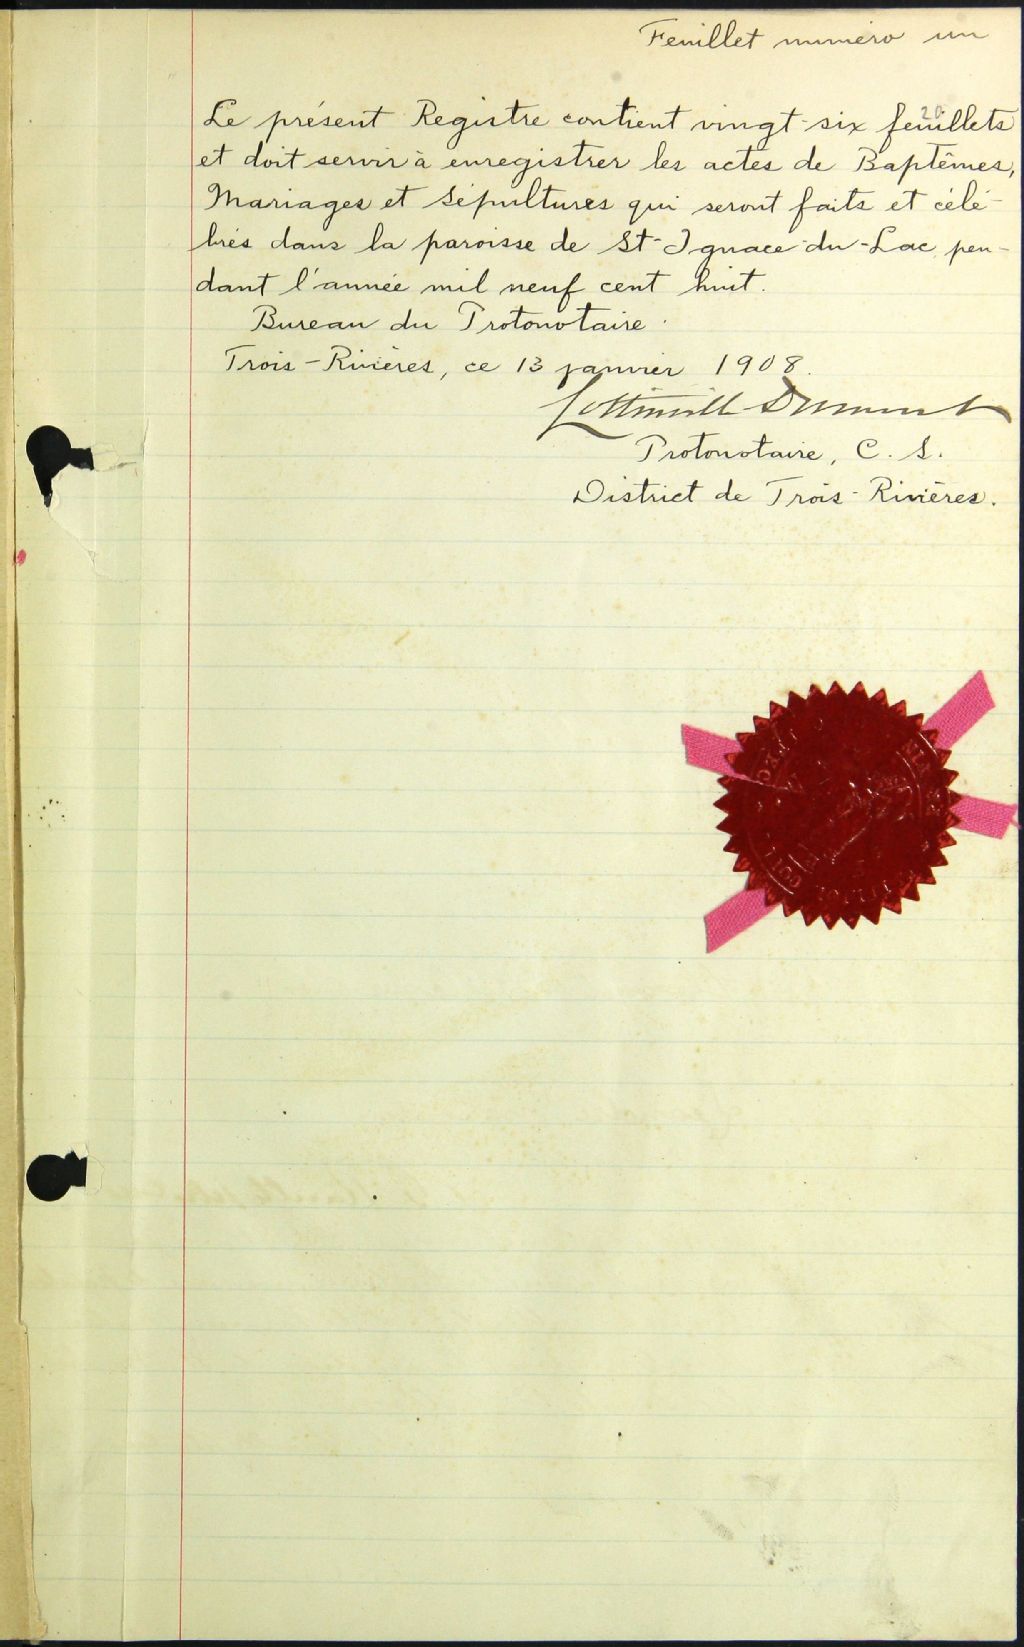 Feuillet numéro un
20
Le présent Registre contient vingt-six feuillets
et doit servir à enregistrer les actes de Baptêmes,
Mariages et Sépultures qui seront faits et célé-
brés dans la paroisse de St-Ignace-du-Lac, pen-
dant l'année mil neuf cent huit.
Bureau du Protonotaire.
Trois-Rivières, ce 13 janvier 1908.
Protonotaire, C. S.
District de Trois-Rivières.